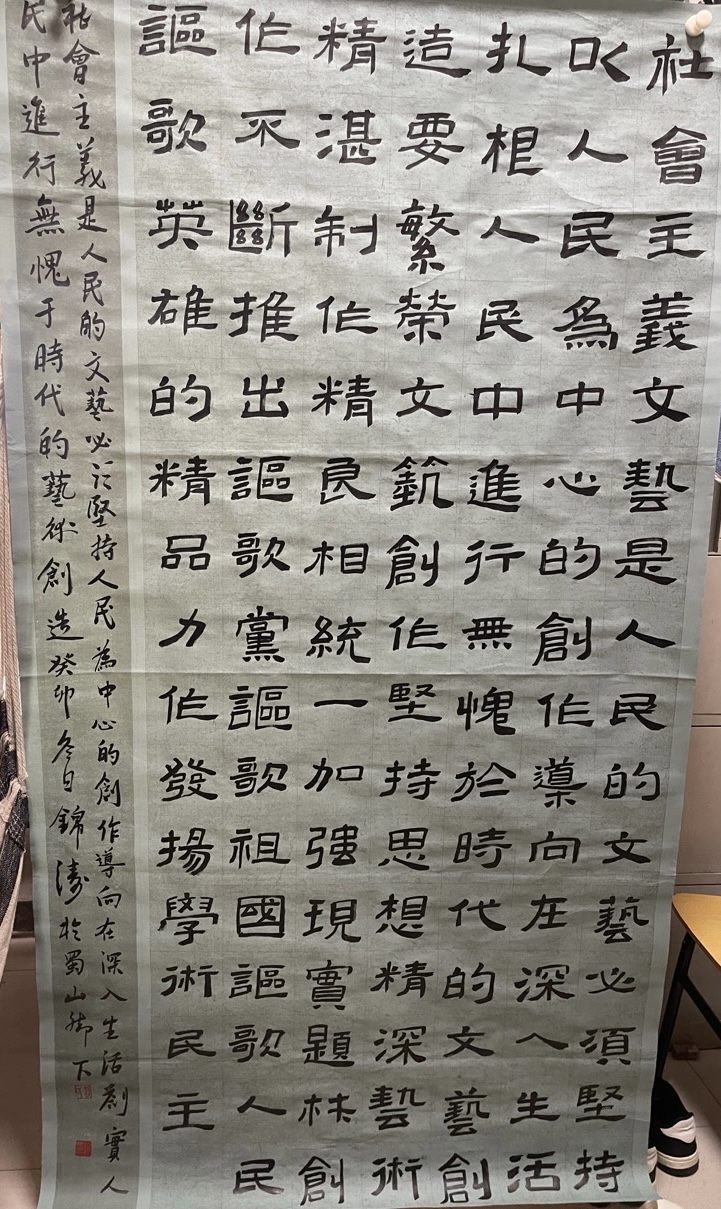 社會主義文藝是人民的文藝必須堅持
以人民為中心的創作導向在深入生活
扎根人民中進行無愧於時代的文藝創
造要繁榮文藝創作堅持思想精深藝術
精湛制作精良相統一加強現實題材創
作不斷推出謳歌黨謳歌祖國謳歌人民
謳歌英雄的精品力作發揚學術民主
社會主義是人民的文藝必須堅持人民為中心的創作導向在深入生活劄實人
民中進行無愧于時代的藝術創造癸卯冬日錦濤於蜀山腳下